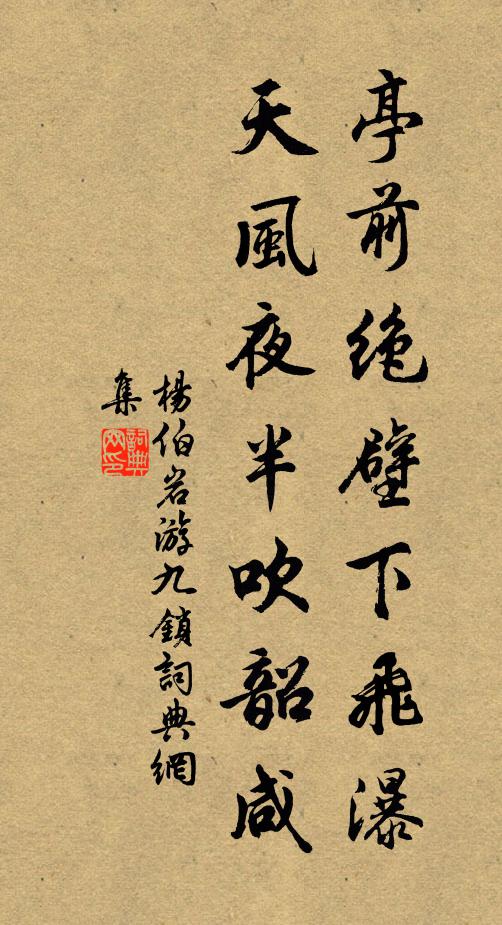 亭前絶壁下飛瀑
天風夜半吹韶咸
楊伯岩游九鎖詞典網
集
詞典網印